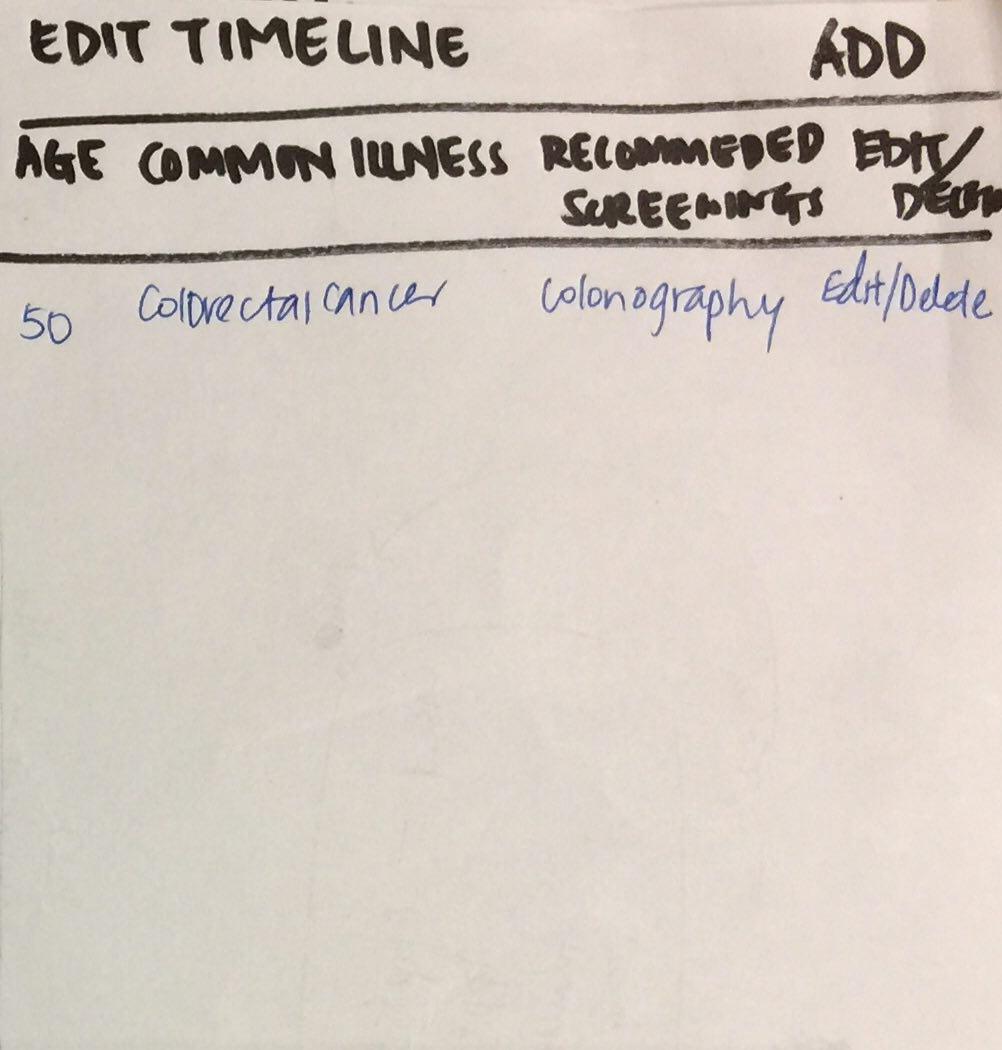 EDIT TIMELINE ADD
AGE COMMON ILLNESS RECOMMEDED EDIT/
SCREENINGS
50 Colorectal cancer Colonography Edit/Delete